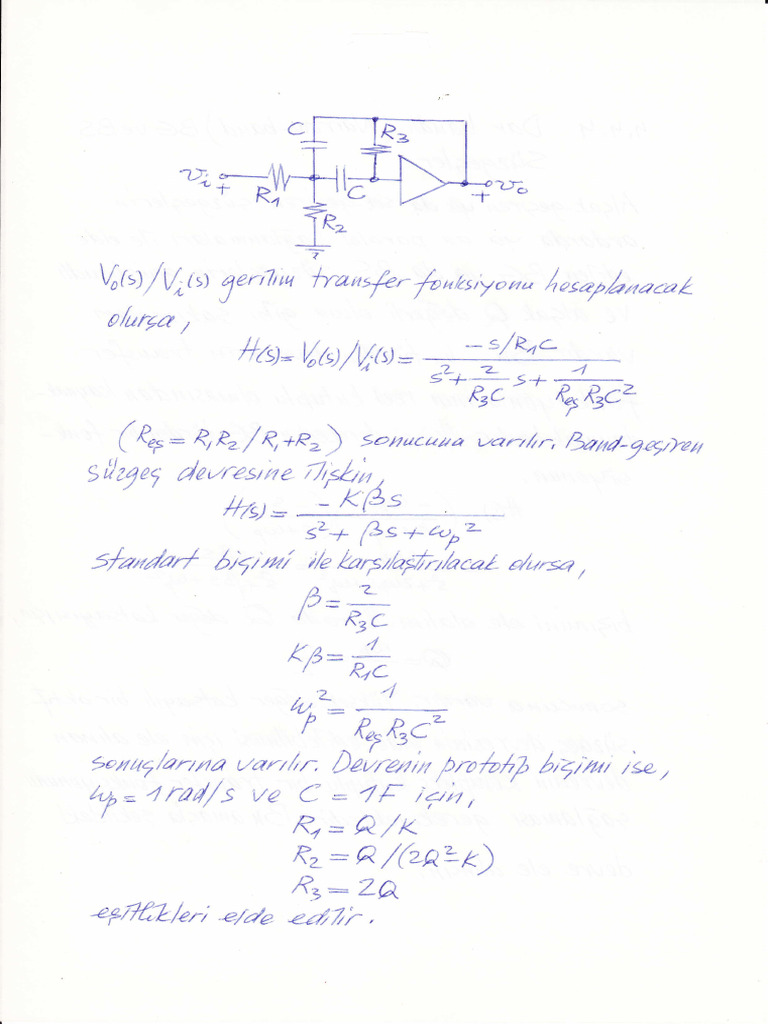 C
R3
vi
+
R1
C
+
vo
R2
Vo(s)/Vi(s) gerilim transfer fonksiyonu hesaplanacak
olursa,
H(s)=Vo(s)/Vi(s)= (-s/R1C) / (s²+ (2/R3C) s+ 1/(Reş R3C²))
(Reş = R1R2 / R1+R2) sonucuna varılır. Band-geçiren
süzgeç devresine ilişkin,
H(s)= -Kβs / (s²+ βs+ωp²)
standart biçimi ile karşılaştırılacak olursa,
β= 2/R3C
Kβ= 1/R1C
ωp²= 1/(ReşR3C²)
sonuçlarına varılır. Devrenin prototip biçimi ise,
ωp=1rad/s ve C = 1F için,
R1=Q/K
R2=Q/(2Q²-K)
R3=2Q
eşitlikleri elde edilir.